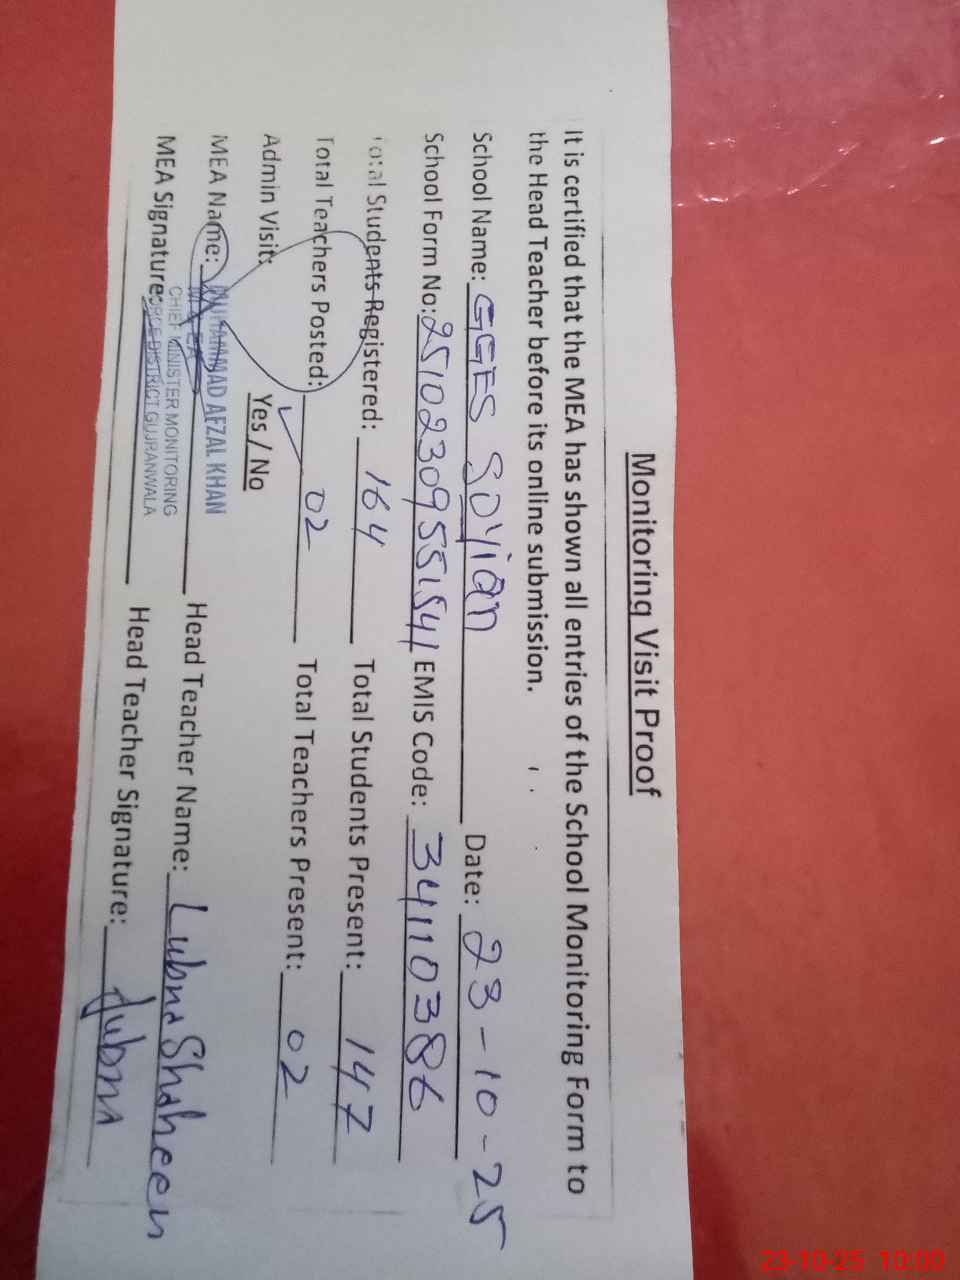 Monitoring Visit Proof
It is certified that the MEA has shown all entries of the School Monitoring Form to
the Head Teacher before its online submission.
School Name: GGES SDYian Date: 23-10-25
School Form No: 25102309551541 EMIS Code: 34110386
Total Students Registered: 164 Total Students Present: 147
Total Teachers Posted: 02 Total Teachers Present: 02
Admin Visit: Yes / No
MEA Name: MUHAMMAD AFZAL KHAN Head Teacher Name: Lubna Shaheen
MEA
CHIEF MINISTER MONITORING
MEA Signature: FORCE DISTRICT GUJRANWALA Head Teacher Signature: Lubna
23-10-25 10:00